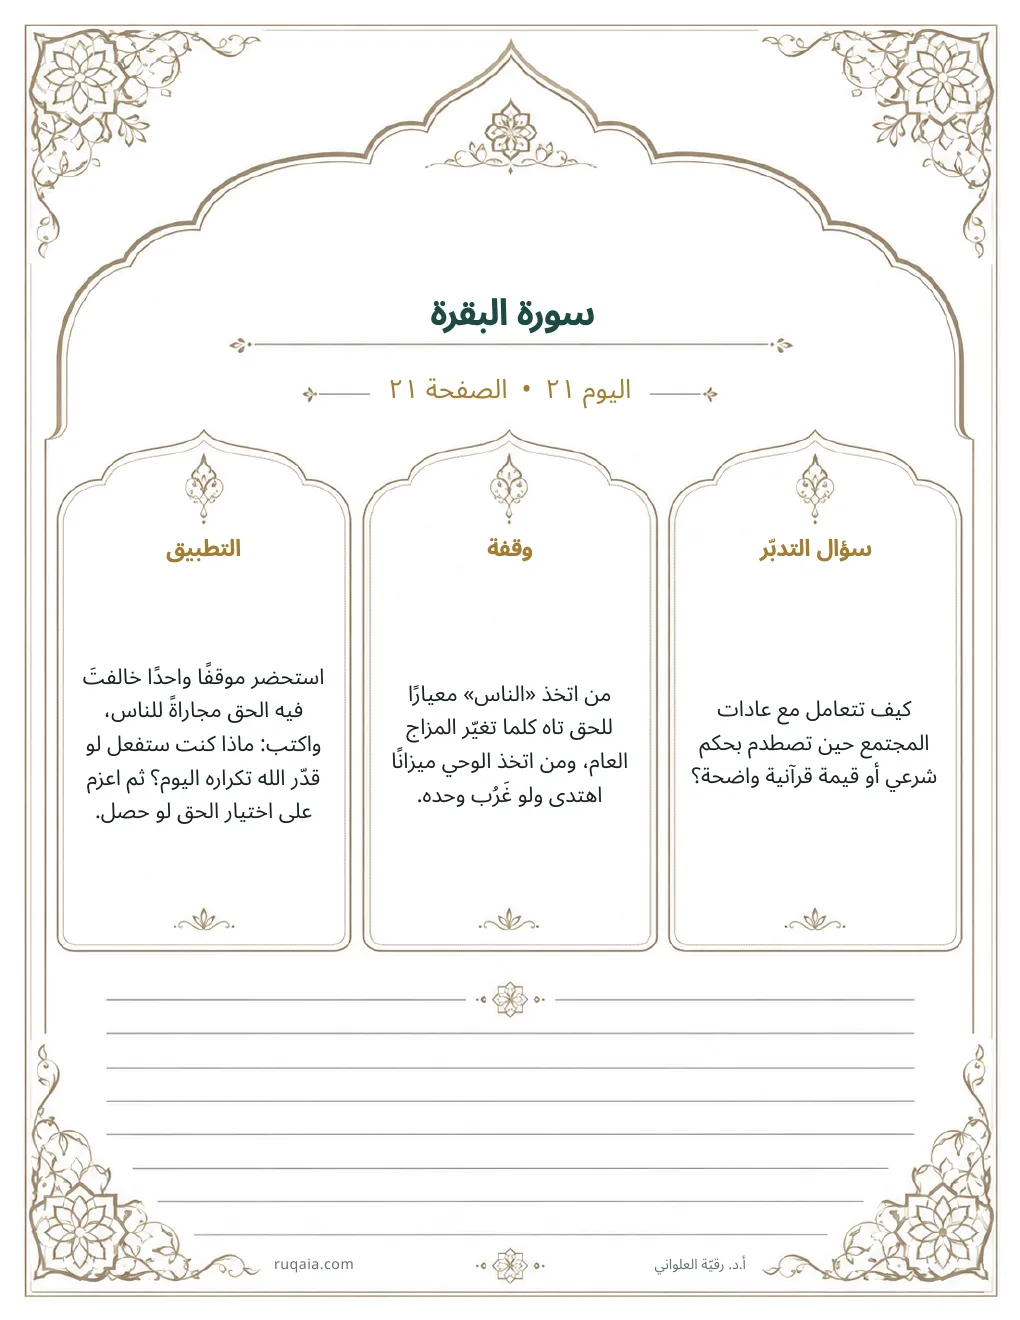 سورة البقرة
اليوم ٢١ • الصفحة ٢١
سؤال التدبّر
كيف تتعامل مع عادات
المجتمع حين تصطدم بحكم
شرعي أو قيمة قرآنية واضحة؟
وقفة
من اتخذ «الناس» معيارًا
للحق تاه كلما تغيّر المزاج
العام، ومن اتخذ الوحي ميزانًا
اهتدى ولو غَرُب وحده.
التطبيق
استحضر موقفًا واحدًا خالفتَ
فيه الحق مجاراةً للناس،
واكتب: ماذا كنت ستفعل لو
قدّر الله تكراره اليوم؟ ثم اعزم
على اختيار الحق لو حصل.
أ.د. رقيّة العلواني
ruqaia.com